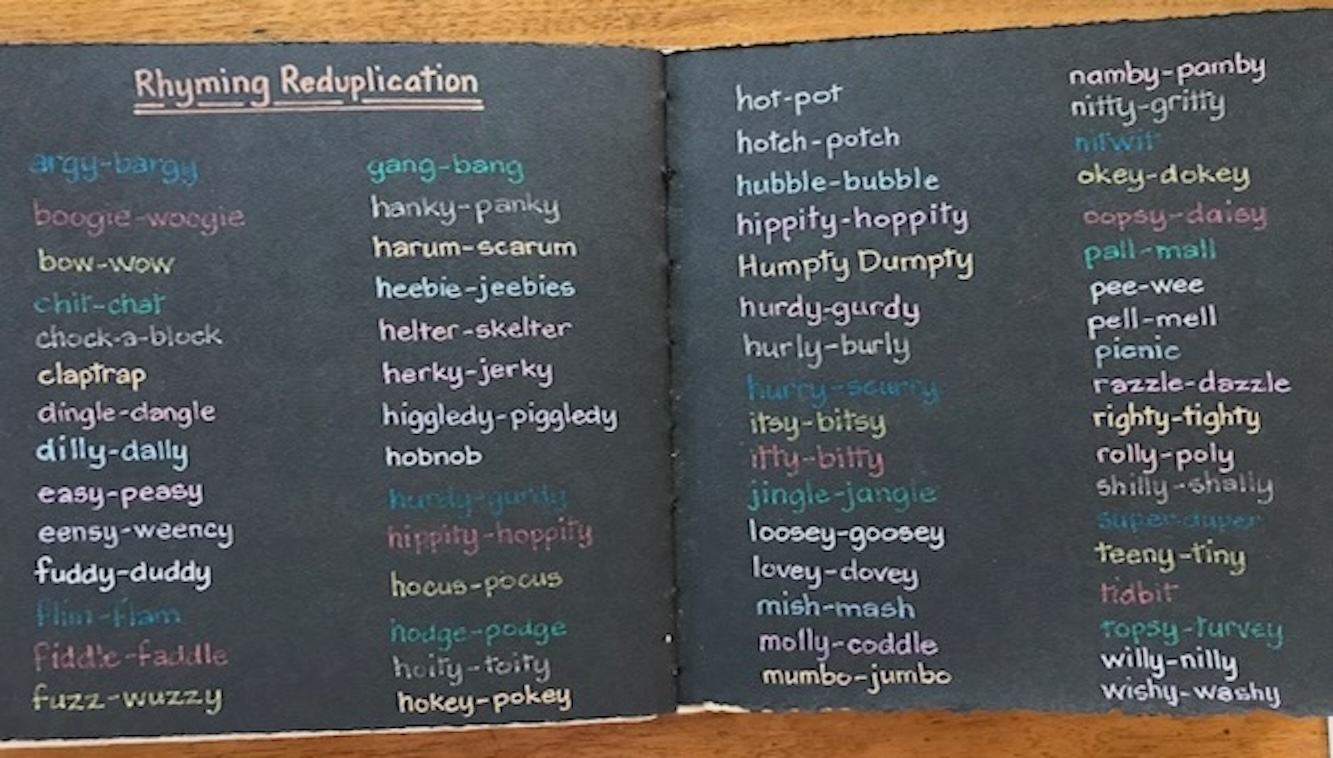 Rhyming Reduplication
argy-bargy
boogie-woogie
bow-wow
chit-chat
chock-a-block
claptrap
dingle-dangle
dilly-dally
easy-peasy
eensy-weency
fuddy-duddy
flim-flam
fiddle-faddle
fuzz-wuzzy
gang-bang
hanky-panky
harum-scarum
heebie-jeebies
helter-skelter
herky-jerky
higgledy-piggledy
hobnob
hurdy-gurdy
hippity-hoppity
hocus-pocus
hodge-podge
hoity-toity
hokey-pokey
hot-pot
hotch-potch
hubble-bubble
hippity-hoppity
Humpty Dumpty
hurdy-gurdy
hurly-burly
hurry-scurry
itsy-bitsy
itty-bitty
jingle-jangle
loosey-goosey
lovey-dovey
mish-mash
molly-coddle
mumbo-jumbo
namby-pamby
nitty-gritty
nitwit
okey-dokey
oopsy-daisy
pall-mall
pee-wee
pell-mell
picnic
razzle-dazzle
righty-tighty
rolly-poly
shilly-shally
super-duper
teeny-tiny
tidbit
topsy-turvey
willy-nilly
wishy-washy